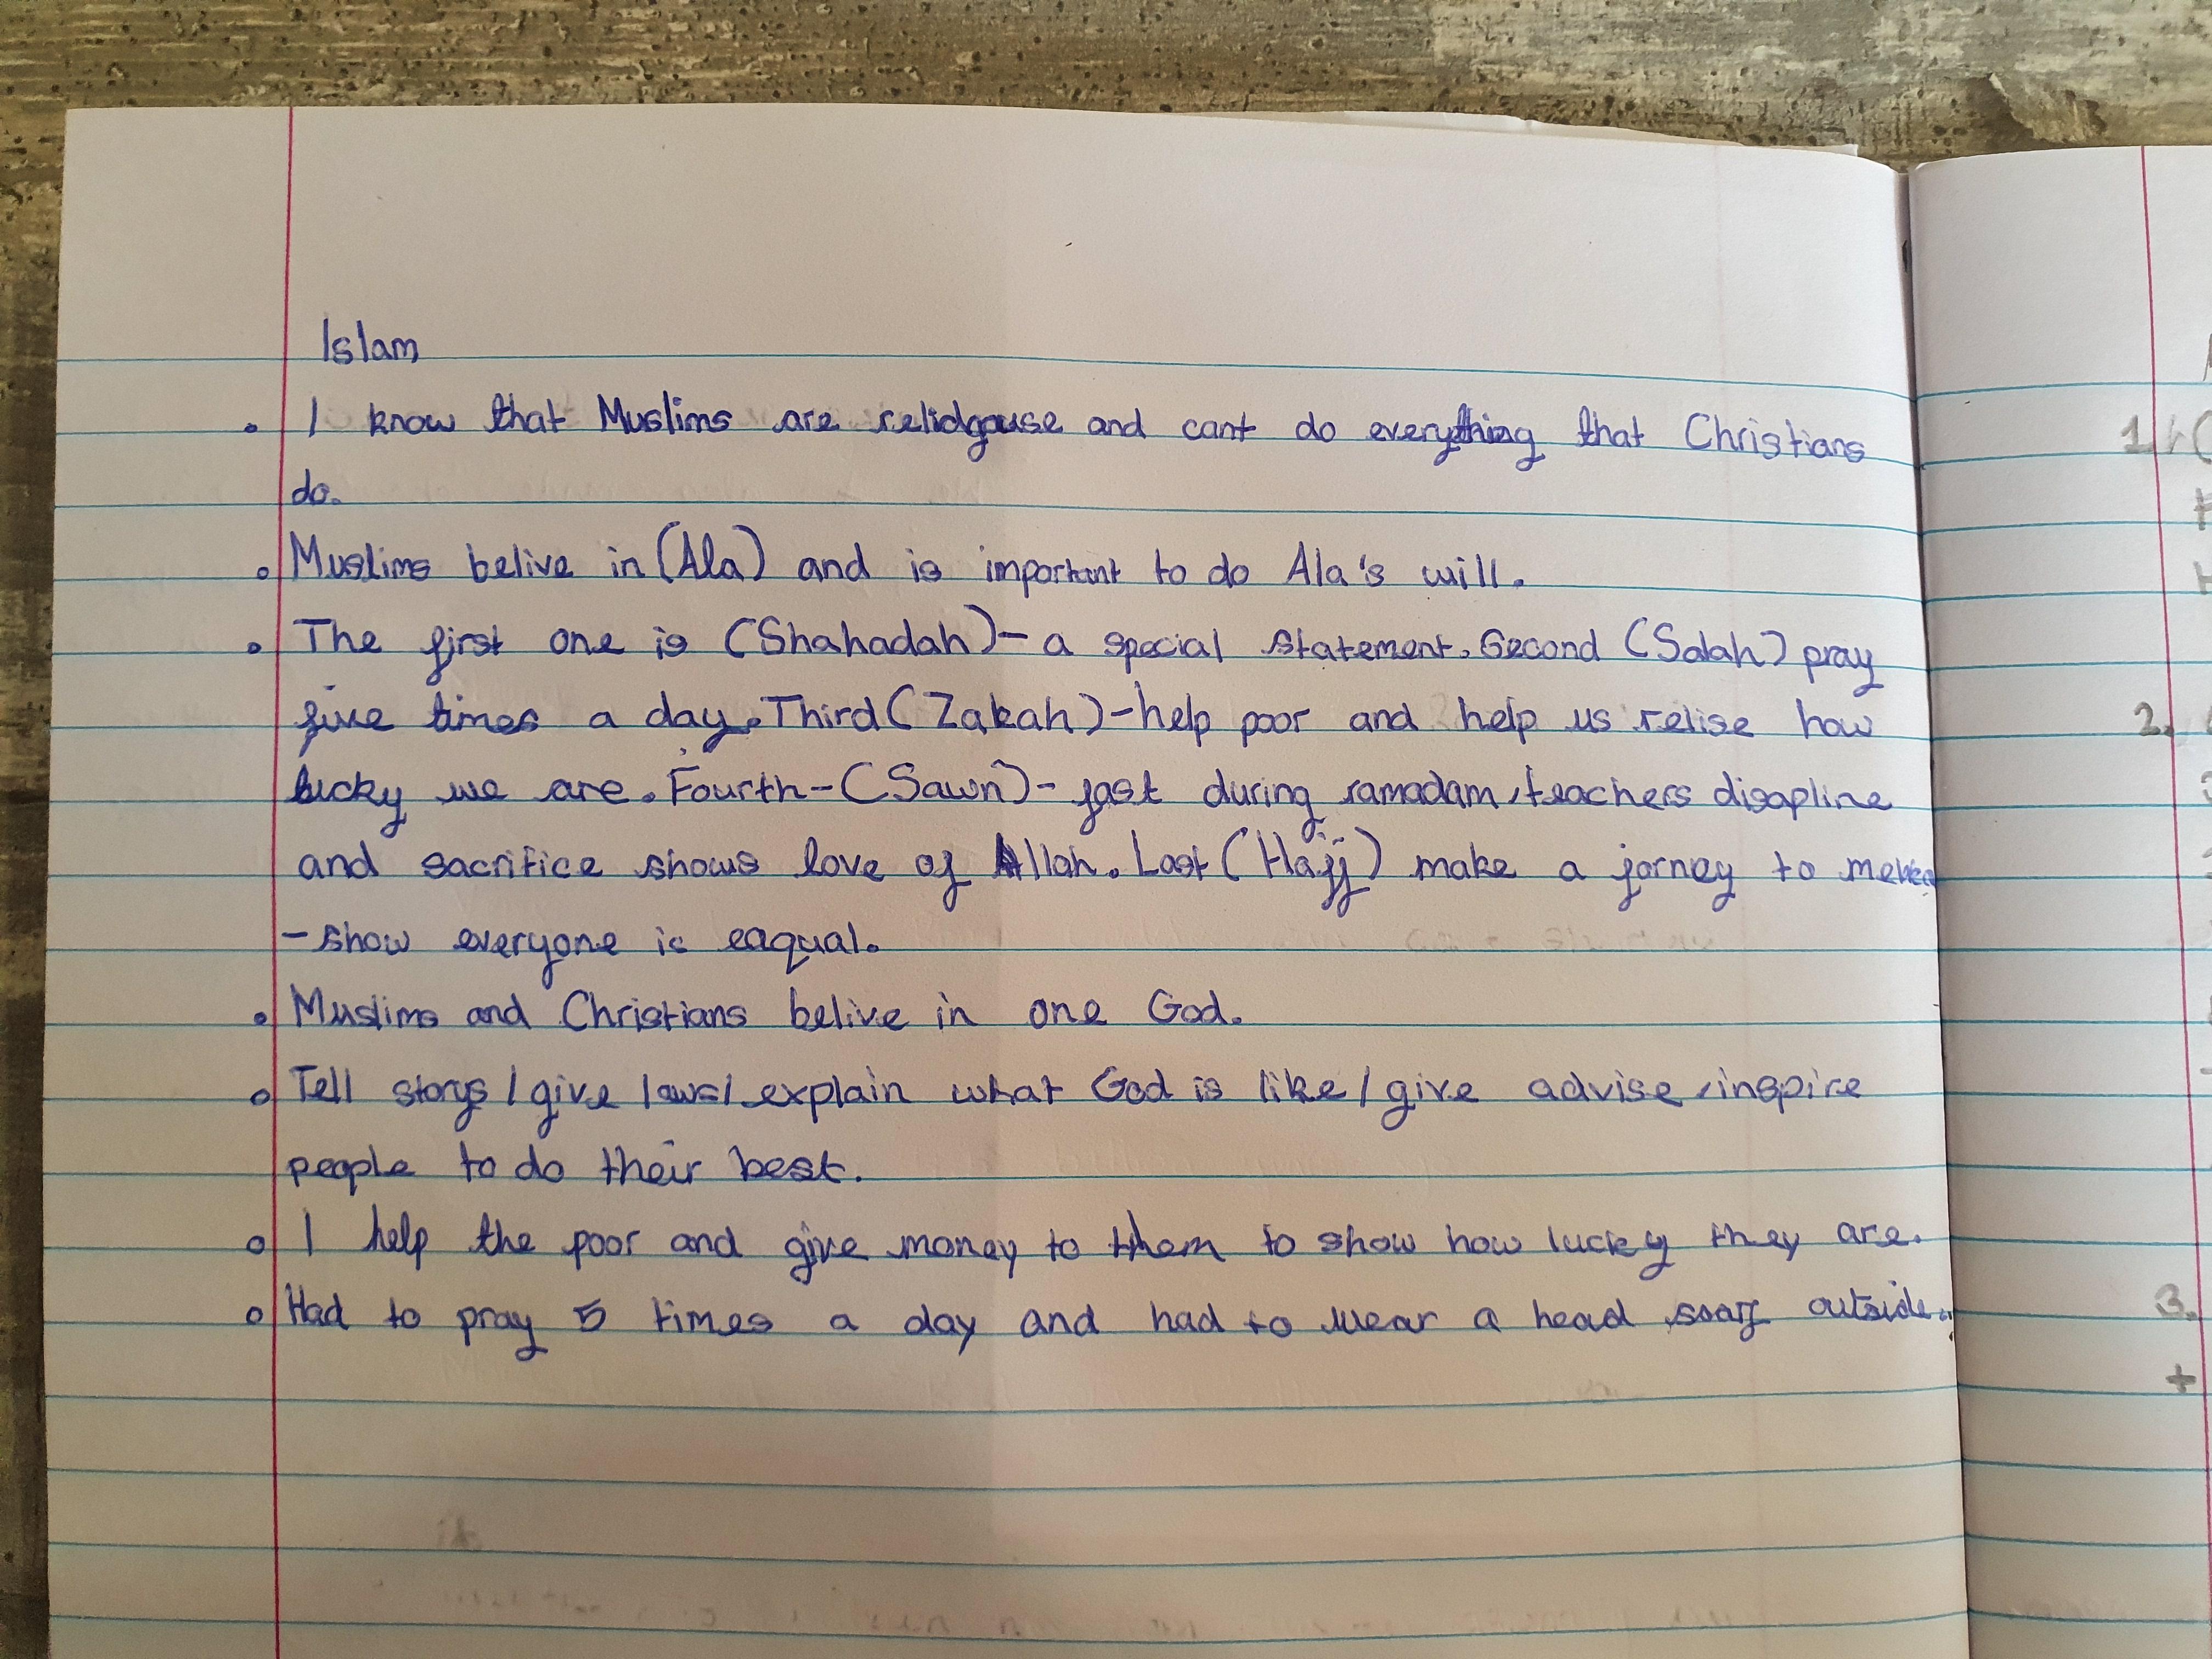 Islam
• I know that Muslims are relidgouse and cant do everything that Christians
do.
• Muslims belive in (Ala) and is important to do Ala's will.
• The first one is (Shahadah)- a special statement. Second (Salah) pray
five times a day. Third (Zakah)-help poor and help us relise how
lucky we are. Fourth-(Sawn)- fast during ramadam, teachers disapline
and sacrifice shows love of Allah. Last (Hajj) make a jorney to
-show everyone is eaqual.
• Muslims and Christians belive in one God.
• Tell storys / give laws / explain what God is like / give advise, inspire
people to do their best.
• I help the poor and give money to them to show how lucky they are.
• Had to pray 5 times a day and had to wear a head soarf outside.
1.
2.
3.
+